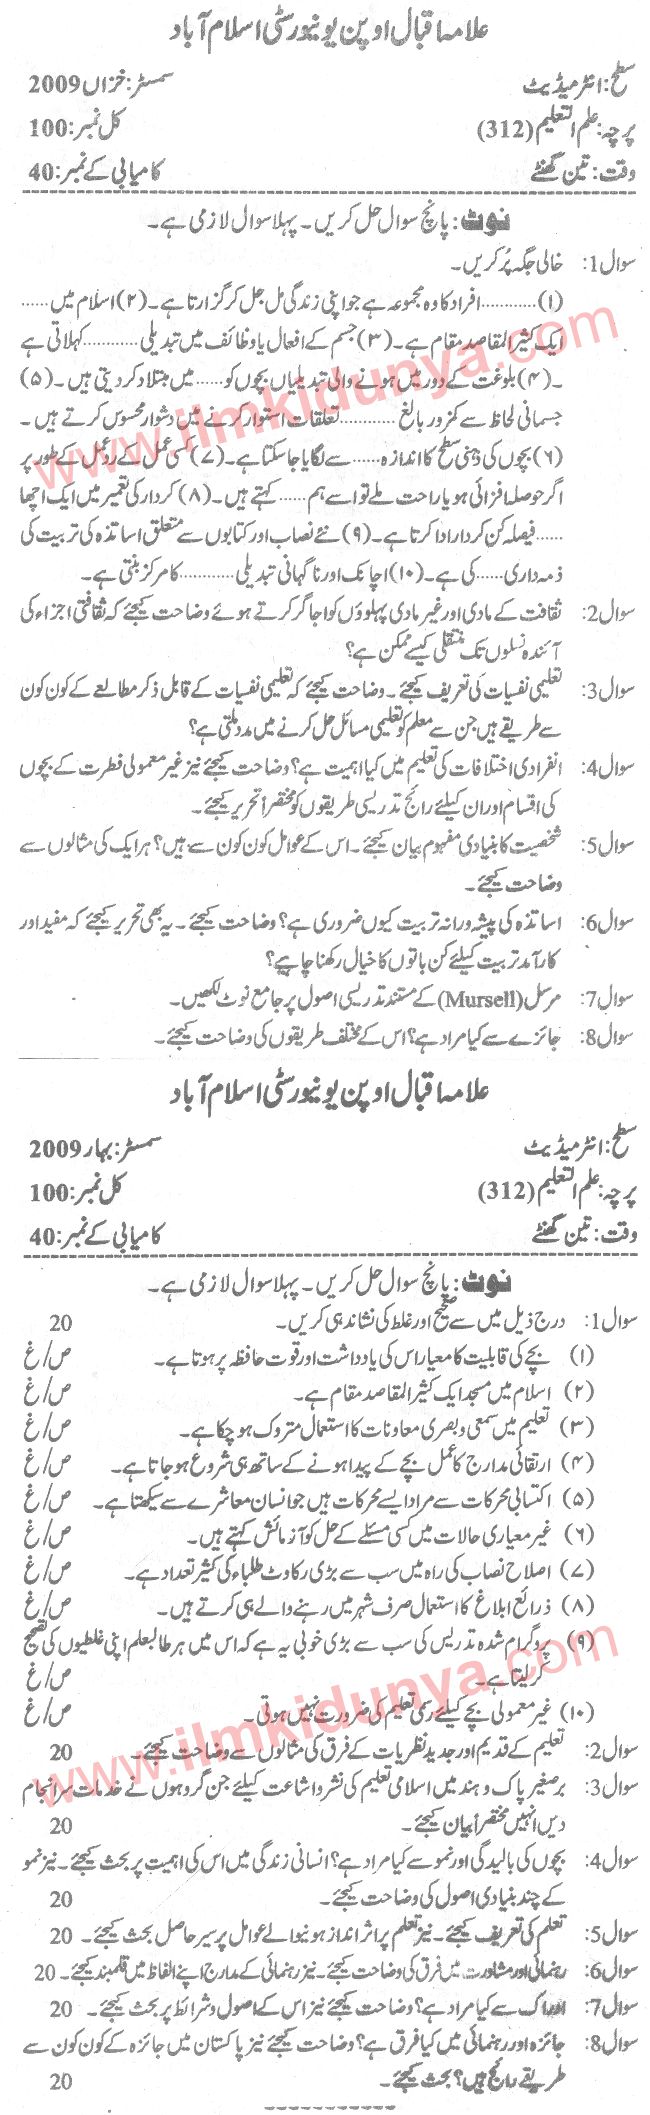 علامہ اقبال اوپن یونیورسٹی اسلام آباد
سطح: انٹرمیڈیٹ سمسٹر: خزاں 2009
پرچہ: علم التعلیم (312) کل نمبر: 100
وقت: تین گھنٹے کامیابی کے نمبر: 40
نوٹ: پانچ سوال حل کریں۔ پہلا سوال لازمی ہے۔
سوال 1: خالی جگہ پُر کریں۔
(۱)............ افراد کا وہ مجموعہ ہے جو اپنی زندگی مل جل کر گزارتا ہے۔ (۲) اسلام میں ......
ایک کثیر المقاصد مقام ہے۔ (۳) جسم کے افعال یا وظائف میں تبدیلی ......... کہلاتی ہے
۔ (۴) بلوغت کے دور میں ہونے والی تبدیلیاں بچوں کو ...... میں مبتلا کر دیتی ہیں۔ (۵)
جسمانی لحاظ سے کمزور بالغ ............ تعلقات استوار کرنے میں دشوار محسوس کرتے ہیں۔
(۶) بچوں کی ذہنی سطح کا اندازہ ...... سے لگایا جا سکتا ہے۔ (۷) کسی عمل کے ردِعمل کے طور پر
اگر حوصلہ افزائی ہو یا راحت ملے تو اسے ہم ...... کہتے ہیں۔ (۸) کردار کی تعمیر میں ایک اچھا
...... فیصلہ کن کردار ادا کرتا ہے۔ (۹) نئے نصاب اور کتابوں سے متعلق اساتذہ کی تربیت کی
ذمہ داری ...... کی ہے۔ (۱۰) اچانک اور ناگہانی تبدیلی ............ کا مرکز بنتی ہے۔
سوال 2: ثقافت کے مادی اور غیر مادی پہلوؤں کو اجاگر کرتے ہوئے وضاحت کیجئے کہ ثقافتی اجزاء کی
آئندہ نسلوں تک منتقلی کیسے ممکن ہے؟
سوال 3: تعلیمی نفسیات کی تعریف کیجئے۔ وضاحت کیجئے کہ تعلیمی نفسیات کے قابل ذکر مطالعے کے کون کون
سے طریقے ہیں جن سے معلم کو تعلیمی مسائل حل کرنے میں مدد ملتی ہے؟
سوال 4: انفرادی اختلافات کی تعلیم میں کیا اہمیت ہے؟ وضاحت کیجئے نیز غیر معمولی فطرت کے بچوں
کی اقسام اور ان کیلئے رائج تدریسی طریقوں کو مختصراً تحریر کیجئے۔
سوال 5: شخصیت کا بنیادی مفہوم بیان کیجئے۔ اس کے عوامل کون کون سے ہیں؟ ہر ایک کی مثالوں سے
وضاحت کیجئے۔
سوال 6: اساتذہ کی پیشہ ورانہ تربیت کیوں ضروری ہے؟ وضاحت کیجئے۔ یہ بھی تحریر کیجئے کہ مفید اور
کارآمد تربیت کیلئے کن باتوں کا خیال رکھنا چاہیے؟
سوال 7: مرسل (Mursell) کے مستند تدریسی اصول پر جامع نوٹ لکھیں۔
سوال 8: جائزے سے کیا مراد ہے؟ اس کے مختلف طریقوں کی وضاحت کیجئے۔
علامہ اقبال اوپن یونیورسٹی اسلام آباد
سطح: انٹرمیڈیٹ سمسٹر: بہار 2009
پرچہ: علم التعلیم (312) کل نمبر: 100
وقت: تین گھنٹے کامیابی کے نمبر: 40
نوٹ: پانچ سوال حل کریں۔ پہلا سوال لازمی ہے۔
سوال 1: درج ذیل میں سے صحیح اور غلط کی نشاندہی کریں۔ 20
(۱) بچے کی قابلیت کا معیار اس کی یادداشت اور قوت حافظہ پر ہوتا ہے۔ ص/غ
(۲) اسلام میں مسجد ایک کثیر المقاصد مقام ہے۔ ص/غ
(۳) تعلیم میں سمعی و بصری معاونات کا استعمال متروک ہو چکا ہے۔ ص/غ
(۴) ارتقائی مدارج کا عمل بچے کے پیدا ہونے کے ساتھ ہی شروع ہو جاتا ہے۔ ص/غ
(۵) اکتسابی محرکات سے مراد ایسے محرکات ہیں جو انسان معاشرے سے سیکھتا ہے۔ ص/غ
(۶) غیر معیاری حالات میں کسی مسئلے کے حل کو آزمائش کہتے ہیں۔ ص/غ
(۷) اصلاح نصاب کی راہ میں سب سے بڑی رکاوٹ طلباء کی کثیر تعداد ہے۔ ص/غ
(۸) ذرائع ابلاغ کا استعمال صرف شہر میں رہنے والے ہی کرتے ہیں۔ ص/غ
(۹) پروگرام شدہ تدریس کی سب سے بڑی خوبی یہ ہے کہ اس میں ہر طالبعلم اپنی غلطیوں کی تصحیح
کر لیتا ہے۔ ص/غ
(۱۰) غیر معمولی بچے کیلئے رسمی تعلیم کی ضرورت نہیں ہوتی۔ ص/غ
سوال 2: تعلیم کے قدیم اور جدید نظریات کے فرق کی مثالوں سے وضاحت کیجئے۔ 20
سوال 3: برصغیر پاک و ہند میں اسلامی تعلیم کی نشر و اشاعت کیلئے جن گروہوں نے خدمات سرانجام
دیں انہیں مختصراً بیان کیجئے۔ 20
سوال 4: بچوں کی بالیدگی اور نمو سے کیا مراد ہے؟ انسانی زندگی میں اس کی اہمیت پر بحث کیجئے۔ نیز نمو
کے چند بنیادی اصول کی وضاحت کیجئے۔ 20
سوال 5: تعلم کی تعریف کیجئے۔ نیز تعلم پر اثر انداز ہونیوالے عوامل پر سیر حاصل بحث کیجئے۔ 20
سوال 6: رہنمائی اور مشاورت میں فرق کی وضاحت کیجئے۔ نیز رہنمائی کے مدارج اپنے الفاظ میں قلمبند کیجئے۔ 20
سوال 7: ادراک سے کیا مراد ہے؟ وضاحت کیجئے نیز اس کے اصول و شرائط پر بحث کیجئے۔ 20
سوال 8: جائزہ اور رہنمائی میں کیا فرق ہے؟ وضاحت کیجئے نیز پاکستان میں جائزہ کے کون کون سے
طریقے رائج ہیں؟ بحث کیجئے۔ 20
www.ilmkidunya.com
www.ilmkidunya.com